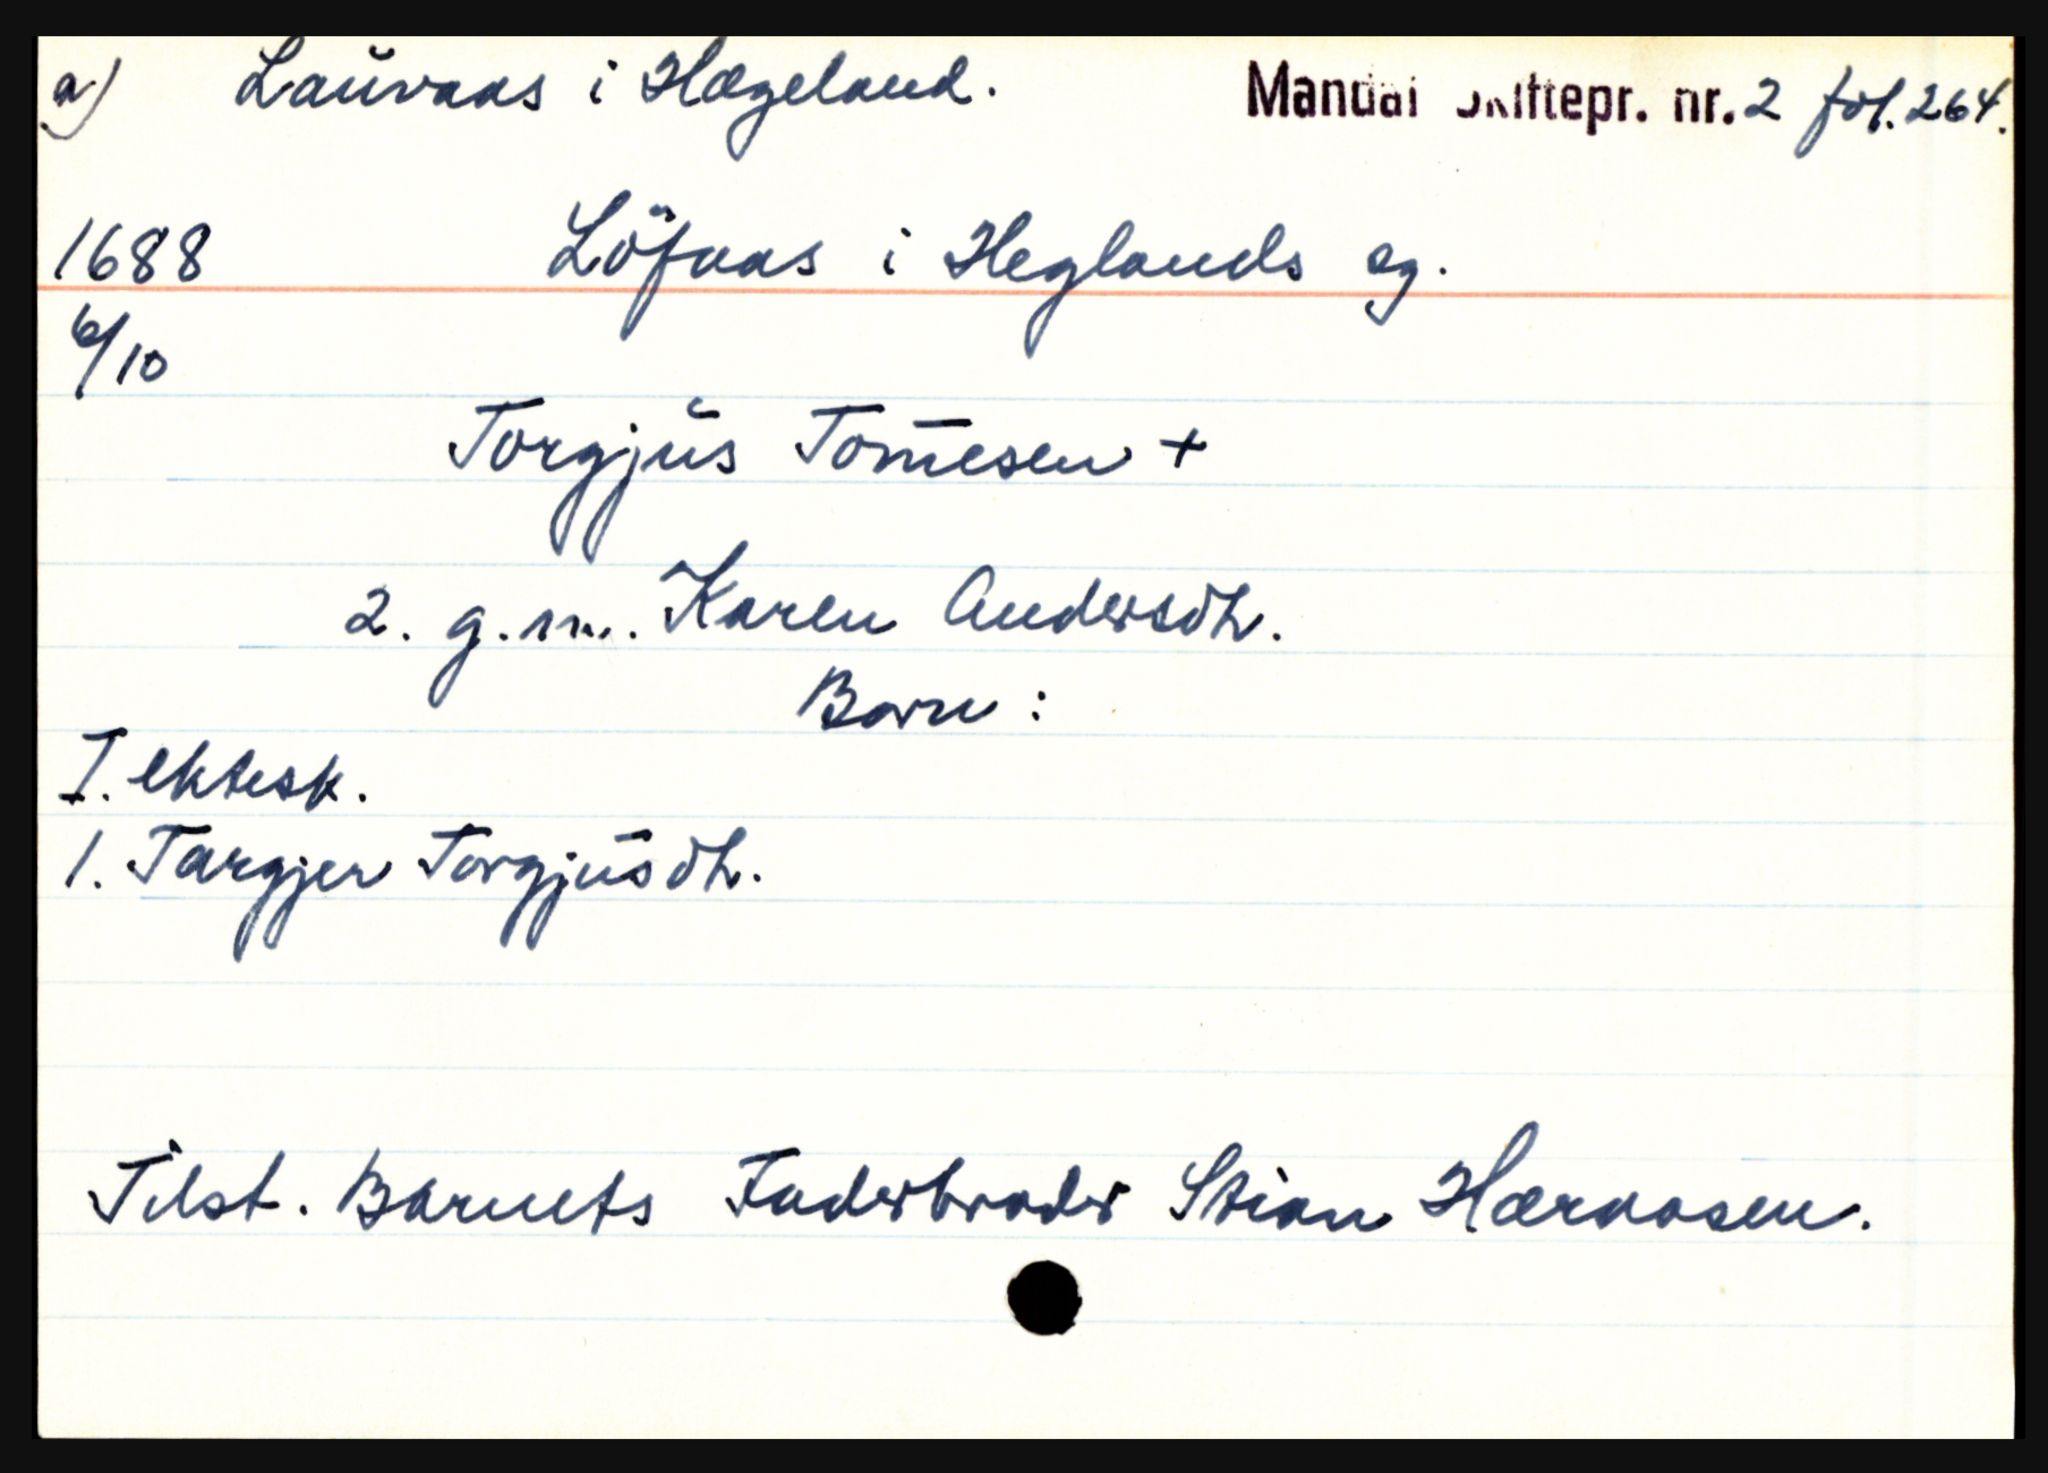 a) Lauvaas i Hægeland. Mandal Skiftepr. nr. 2 fol. 264.
1688 Löfaas i Heglands sg.
6/10
Torgjus Tom̅esen +
2. g.m. Karen Andersdtr.
Born:
I. ektesk.
1. Targjer Torgjusdtr.
Tilst. Barnets Faderbroder Stian Hæraasen.